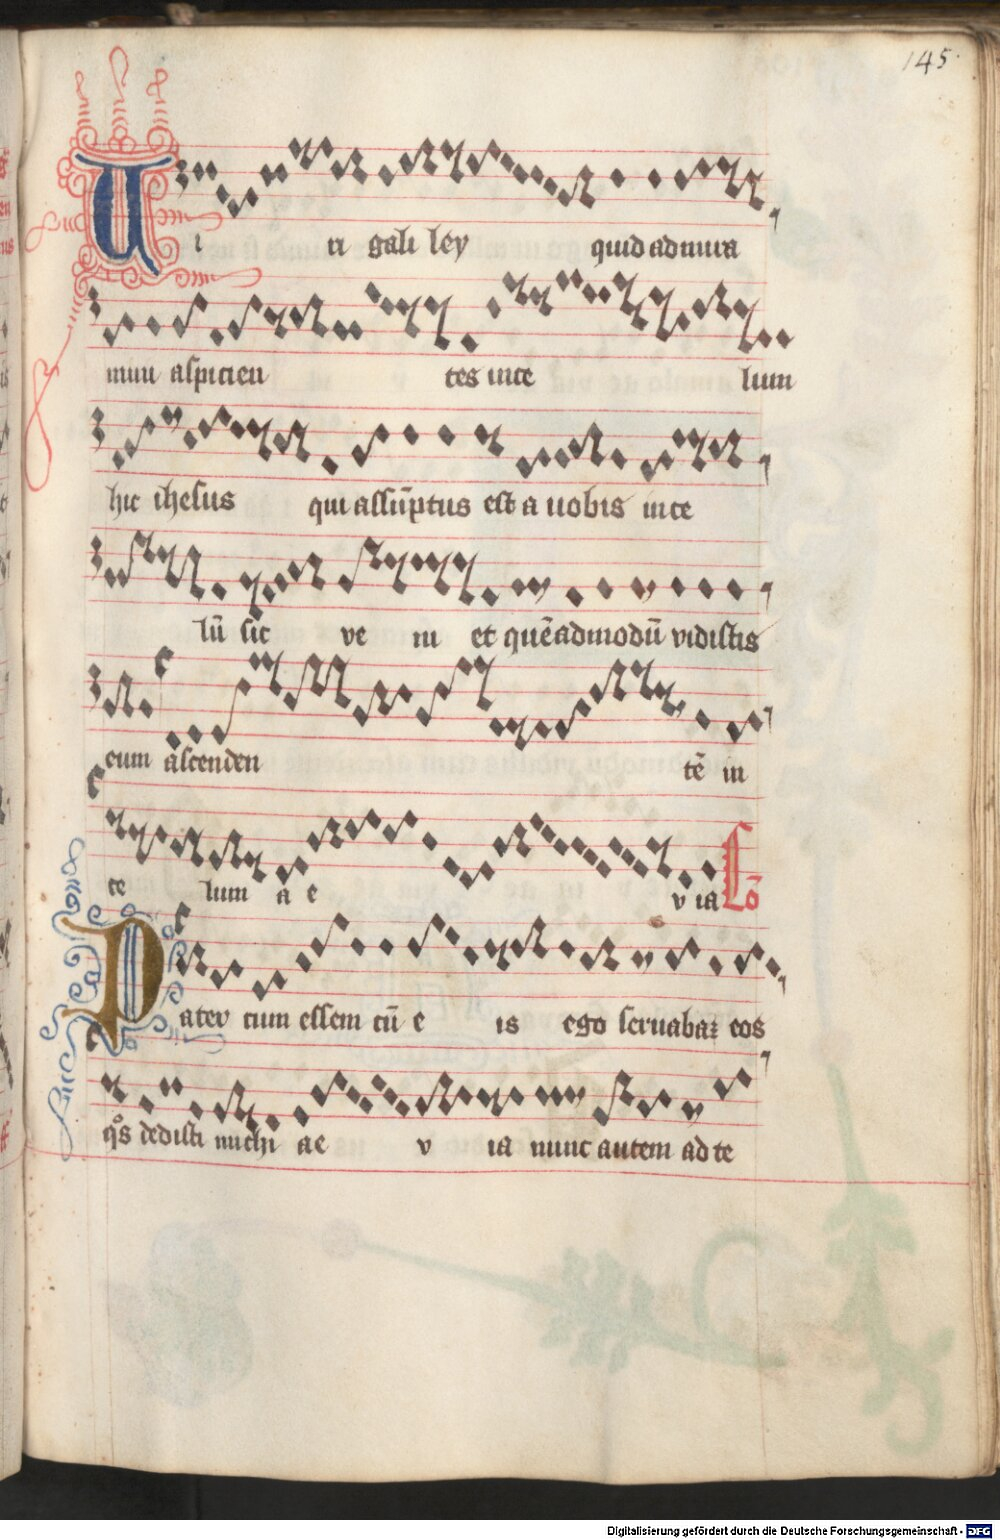 145
Ui ri galiley quid admira
mini aspicien tes ince lum
hic ihesus qui assūptus est a uobis ince
lū sic ve ni et quēadmodū vidistis
eum ascenden tē in
ce lum a e v ia Co
Pater cum essem cū e is ego seruabaꝫ eos
qͦs dedisti michi ae v ia nunc autem ad te
Digitalisierung gefördert durch die Deutsche Forschungsgemeinschaft - DFG